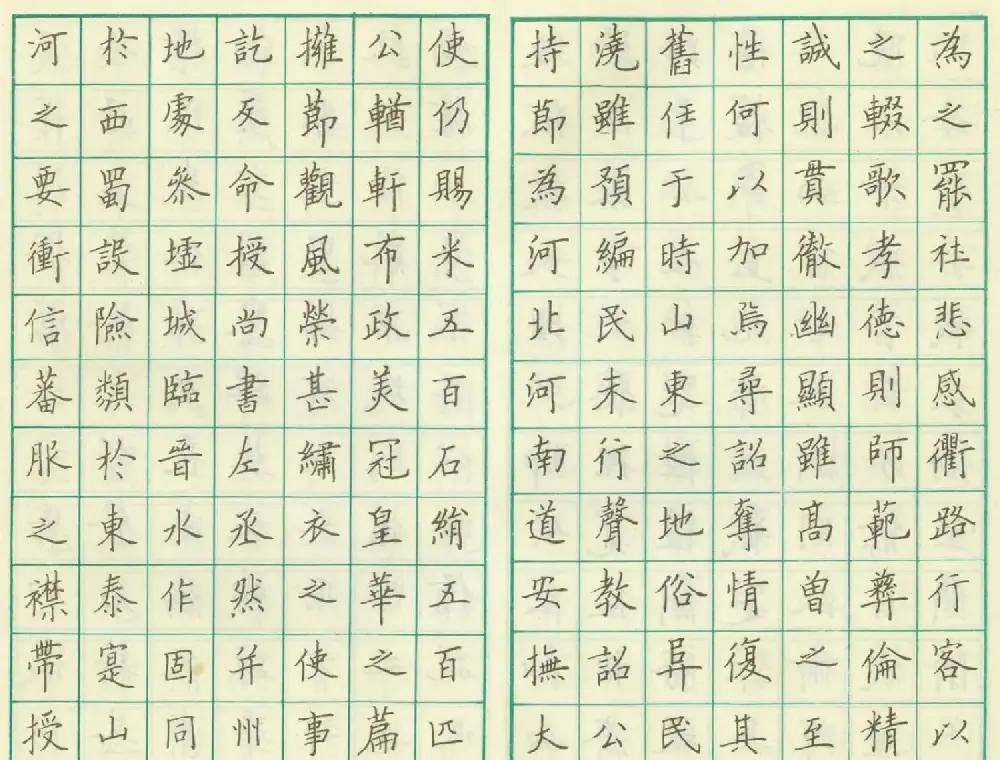 為之罷社悲感衢路行客以
之輟歌孝德則師範彝倫精
誠則貫徹幽顯雖高曽之至
性何以加焉尋詔奪情復其
舊任于時山東之地俗阜民
澆雖預編民未行聲教詔公
持節為河北河南道安撫大
使仍賜米五百石絹五百匹
公輶軒布政美冠皇華之篇
擁節觀風榮甚繡衣之使事
訖反命授尚書左丞然并州
地處參墟城臨晉水作固同
於西蜀設險類於東泰寔山
河之要衝信蕃服之襟帶授